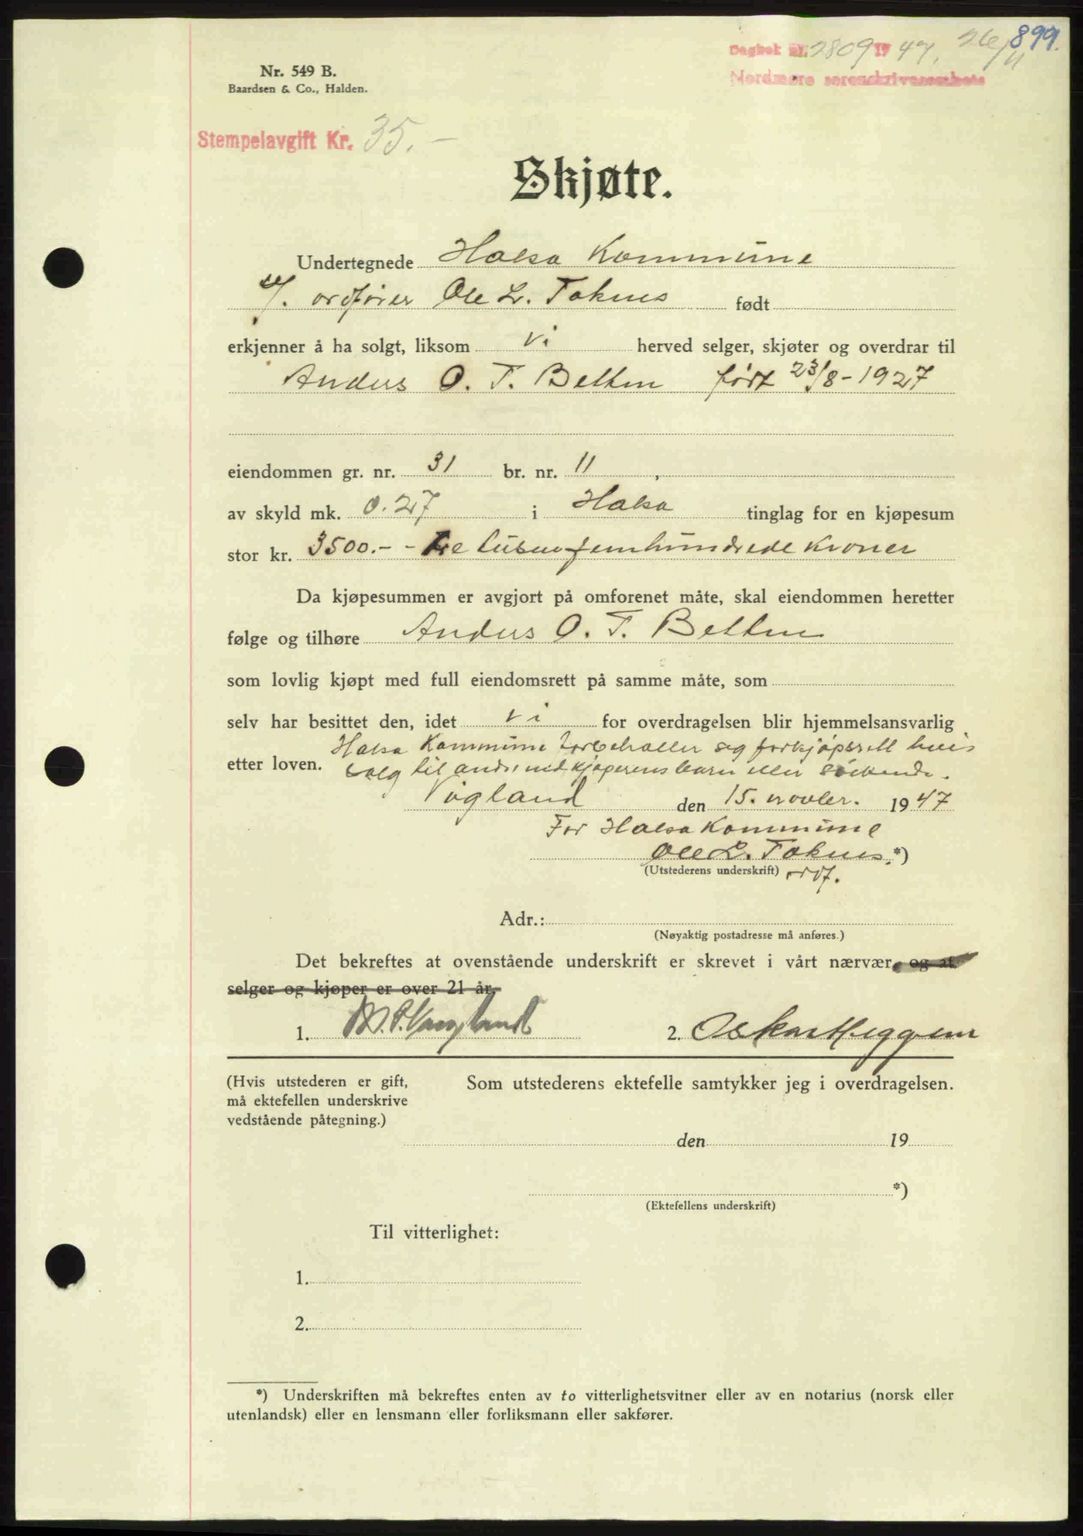 899.
Dagbok nr. 2809 1947. 26/11
Nordmøre sorenskriverembete
Nr. 549 B.
Baardsen & Co., Halden.
Stempelavgift Kr. 35.-
Skjøte.
Undertegnede Halsa Kommune
v/. ordfører Ole L. Toknes født
erkjenner å ha solgt, liksom vi herved selger, skjøter og overdrar til
Anders O. T. Betten født 23/8-1927
eiendommen gr. nr. 31 br. nr. 11 ,
av skyld mk. 0.27 i Halsa tinglag for en kjøpesum
stor kr. 3500.- - Tre tusen femhundrede kroner
Da kjøpesummen er avgjort på omforenet måte, skal eiendommen heretter
følge og tilhøre Anders O. T. Betten
som lovlig kjøpt med full eiendomsrett på samme måte, som
selv har besittet den, idet vi for overdragelsen blir hjemmelsansvarlig
Halsa Kommune forbeholder seg forkjøpsrett hvis
etter loven. salg til andre enn kjøperens barn eller söskende.
Vågland den 15. novbr. 1947
For Halsa Kommune
Ole L. Toknes. *)
(Utstederens underskrift) ordf.
Adr.:
(Nøyaktig postadresse må anføres.)
Det bekreftes at ovenstående underskrift er skrevet i vårt nærvær, og at
selger og kjøper er over 21 år.
1. M. P. Vaagland 2. Oskar Heggem
(Hvis utstederen er gift, Som utstederens ektefelle samtykker jeg i overdragelsen.
må ektefellen underskrive
vedstående påtegning.)
den 19
*)
(Ektefellens underskrift)
Til vitterlighet:
1.
2.
*) Underskriften må bekreftes enten av to vitterlighetsvitner eller av en notarius (norsk eller
utenlandsk) eller en lensmann eller forliksmann eller sakfører.